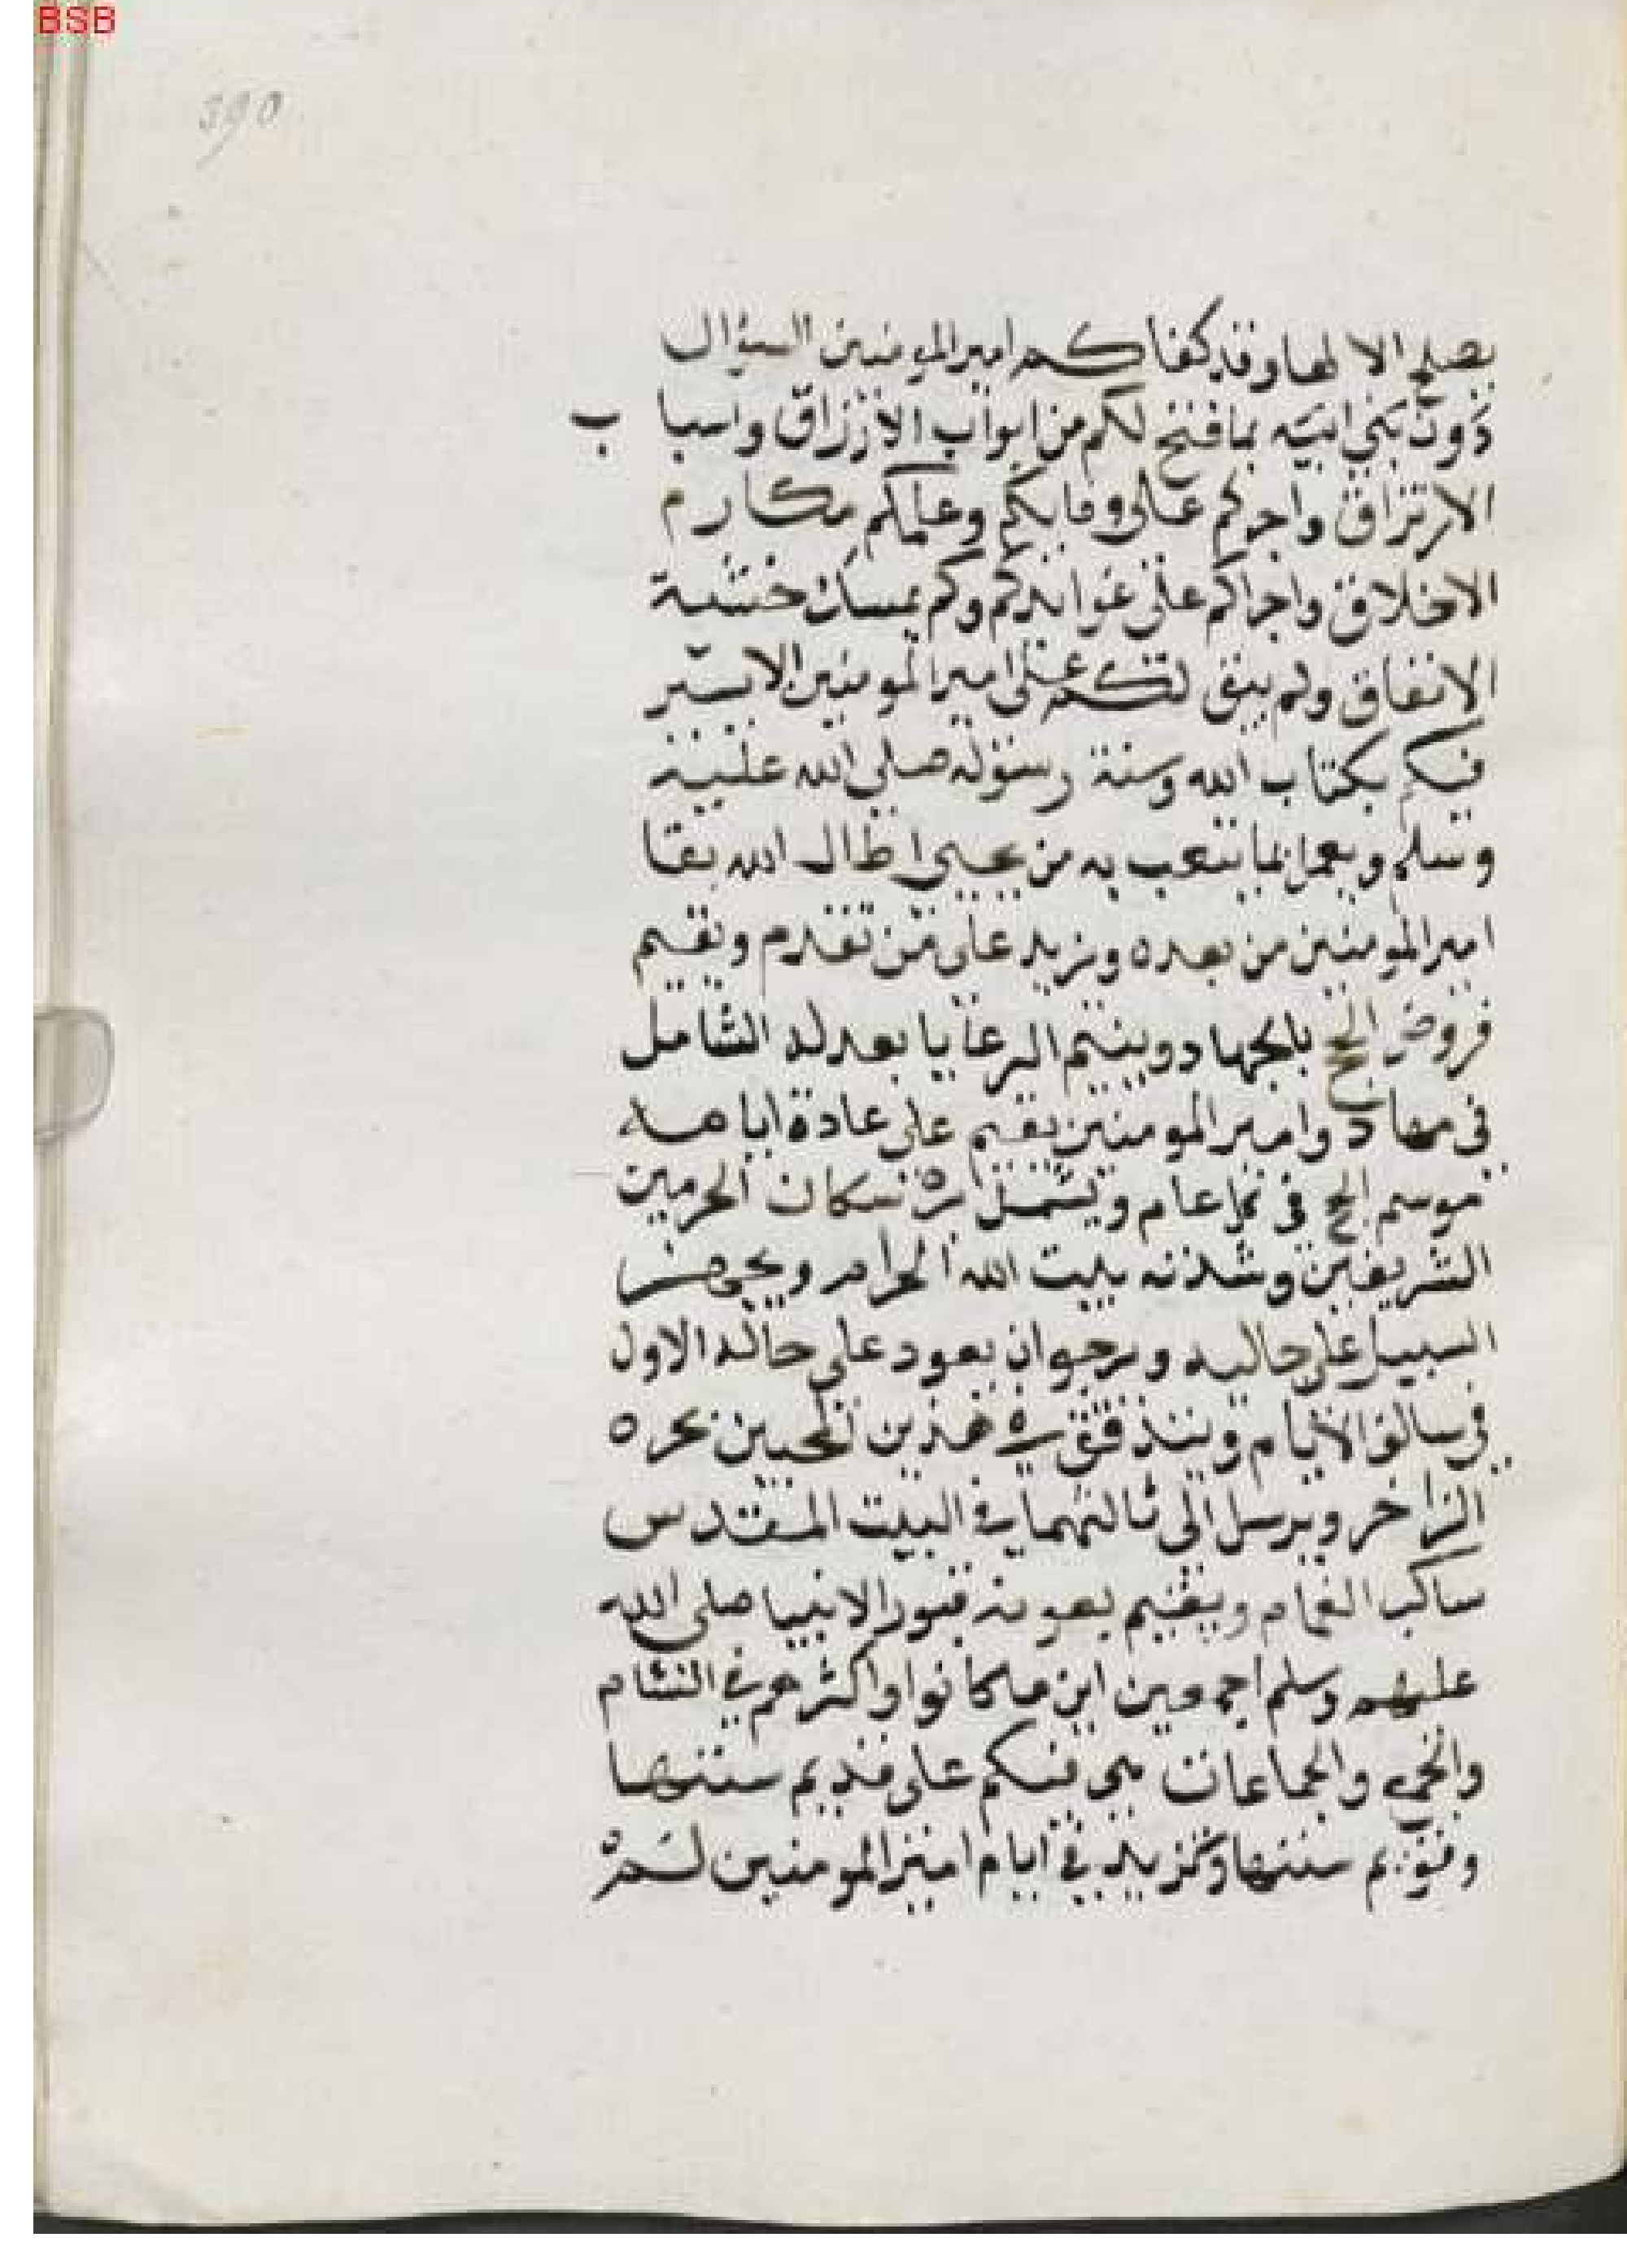 BSB
390
يصلح الا لها وقد كفاكم امير المومنين السؤال
دون بني ابيه بما فتح لكم من ابواب الارزاق واسباب
الارتزاق واجركم على وفايكم وعلمكم مكارم
الاخلاق واجراكم على عوايدكم وكم يمسك خشية
الانفاق ولم يبق لكم على امير المومنين الا يسير
فيكم بكتاب الله وسنة رسوله صلى الله عليه
وسلم ويعمل بما يتعب به من يجيى اطال الله بقا
امير المومنين من بعده ويزيد على من تقدم ويقيم
فروض الحج بالجهاد وينيم الرعايا بعدله الشامل
في مهاد وامير المومنين يقيم على عادة اباهه
موسم الحج في كل عام ويشمل بره سكان الحرمين
الشريفين وشدنه بيت الله الحرام ويجهز
السبيل على حاليه ويرجوان يعود على حاله الاول
في سالف الايام ويتدفق في هذين المحبين بحره
الزاخر ويرسل الى ثالثهما في البيت المقدس
ساكب الغمام ويقيم بعونه قبور الانبيا صلى الله
عليهم وسلم اجمعين اين ما كانوا واكثرهم في الشام
والجمع والجماعات هي فيكم على قديم سننها
وقويم سننها وتزيد في ايام امير المومنين لمن